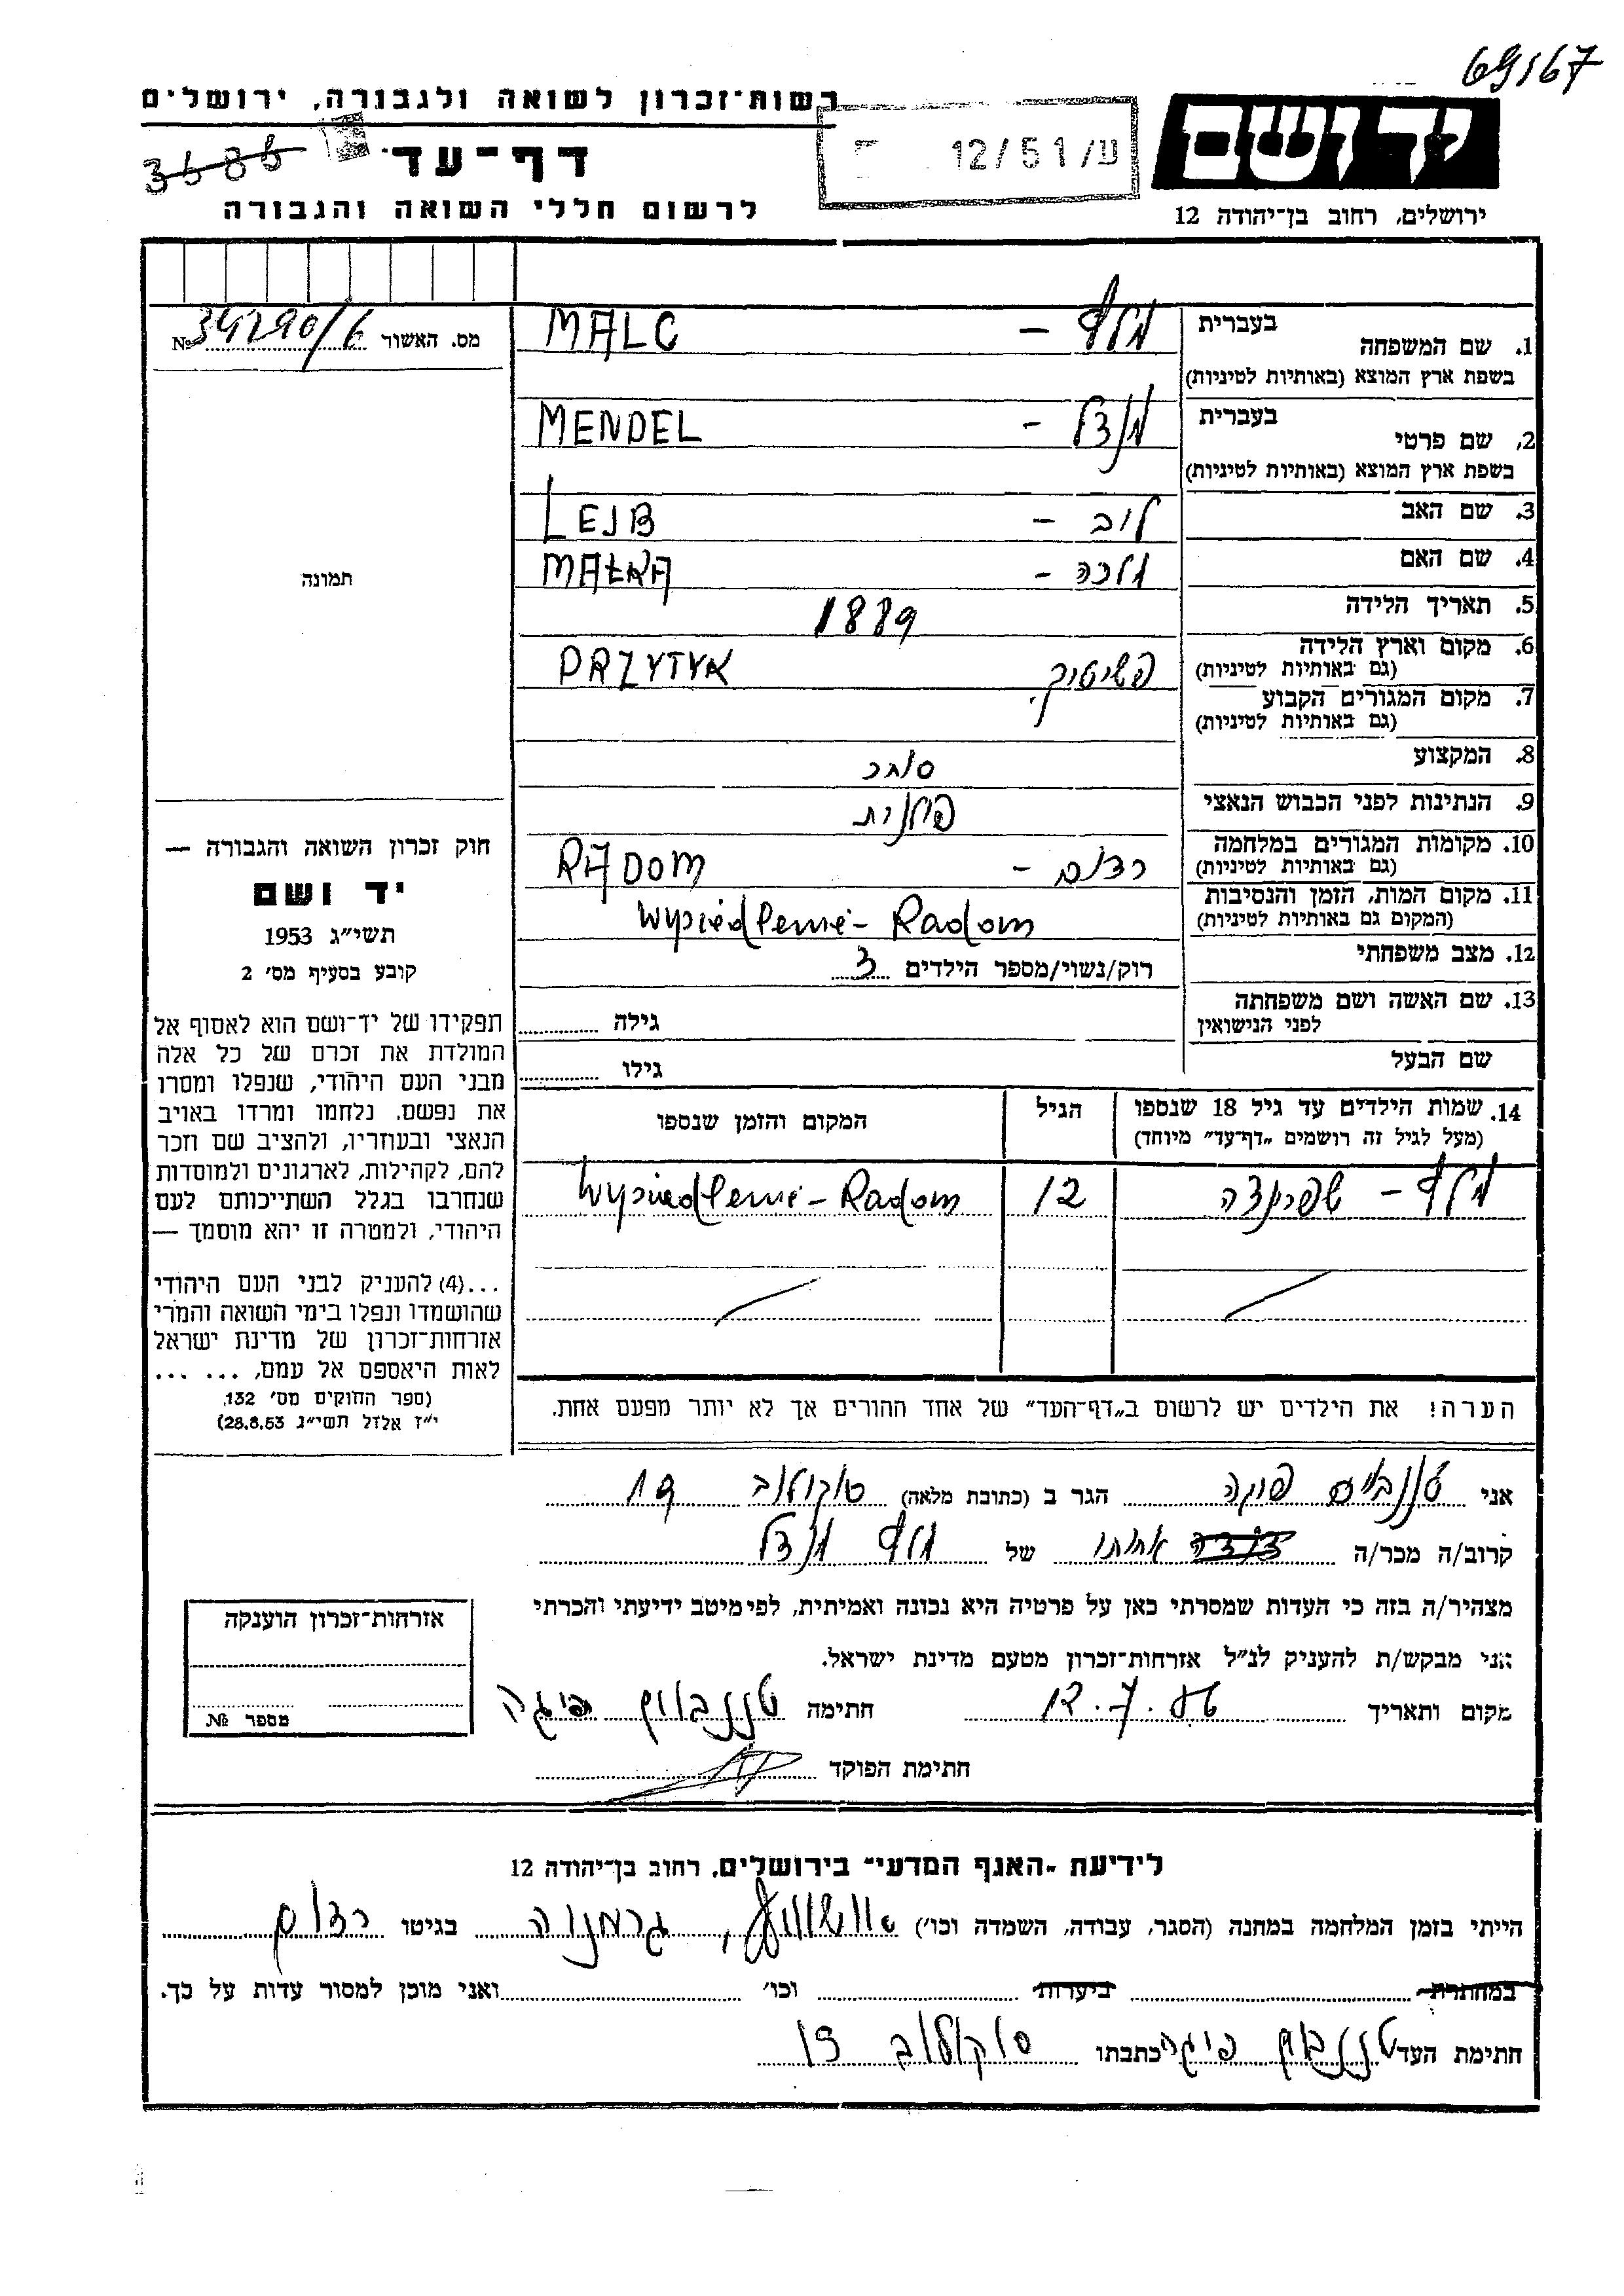 69167
רשות-זכרון לשואה ולגבורה, ירושלים
יד ושם
ירושלים, רחוב בן-יהודה 12
ע/12/51
דף-עד
3686
לרשום חללי השואה והגבורה
מס. האשור № 39290/6
תמונה
1. שם המשפחה בעברית מלץ – MALC
בשפת ארץ המוצא (באותיות לטיניות)
2. שם פרטי בעברית מנדל – MENDEL
בשפת ארץ המוצא (באותיות לטיניות)
3. שם האב לוב – LEJB
4. שם האם מלכה – MAŁKA
5. תאריך הלידה 1889
6. מקום וארץ הלידה פשיטיק PRZYTYK
(גם באותיות לטיניות)
7. מקום המגורים הקבוע
(גם באותיות לטיניות)
8. המקצוע סוחר
9. הנתינות לפני הכבוש הנאצי פולנית
10. מקומות המגורים במלחמה רדום – RADOM
(גם באותיות לטיניות)
11. מקום המות, הזמן והנסיבות Wysiedlenie – Radom
(המקום גם באותיות לטיניות)
12. מצב משפחתי רוק/נשוי/מספר הילדים 3
13. שם האשה ושם משפחתה גילה
לפני הנישואין
שם הבעל גילו
14. שמות הילדים עד גיל 18 שנספו הגיל המקום והזמן שנספו
(מעל לגיל זה רושמים „דף-עד” מיוחד)
מלץ – שפרינצה 12 Wysiedlenie – Radom
הערה! את הילדים יש לרשום ב„דף-העד” של אחד ההורים אך לא יותר מפעם אחת.
חוק זכרון השואה והגבורה —
יד ושם
תשי״ג 1953
קובע בסעיף מס' 2
תפקידו של יד-ושם הוא לאסוף אל
המולדת את זכרם של כל אלה
מבני העם היהודי, שנפלו ומסרו
את נפשם, נלחמו ומרדו באויב
הנאצי ובעוזריו, ולהציב שם וזכר
להם, לקהילות, לארגונים ולמוסדות
שנחרבו בגלל השתייכותם לעם
היהודי, ולמטרה זו יהא מוסמך —
...(4) להעניק לבני העם היהודי
שהושמדו ונפלו בימי השואה והמרי
אזרחות-זכרון של מדינת ישראל
לאות היאספם אל עמם, ... ...
(ספר החוקים מס' 132,
י״ז אלול תשי״ג 28.8.53)
אני טננבוים פיגה הגר ב (כתובת מלאה) סוקולוב 19
קרוב/ה מכר/ה אחותו של מלץ מנדל
מצהיר/ה בזה כי העדות שמסרתי כאן על פרטיה היא נכונה ואמיתית, לפי מיטב ידיעתי והכרתי
אני מבקש/ת להעניק לנ״ל אזרחות-זכרון מטעם מדינת ישראל.
מקום ותאריך 12.7.56 חתימה טננבוים פיגה
חתימת הפוקד
אזרחות-זכרון הוענקה
מספר №
לידיעת „האגף המדעי” בירושלים, רחוב בן-יהודה 12
הייתי בזמן המלחמה במחנה (הסגר, עבודה, השמדה וכו') גרמניה בגיטו רדום
במחתרת ביערות וכו' ואני מוכן למסור עדות על כך.
חתימת העד טננבוים פיגה כתבתו סוקולוב 19